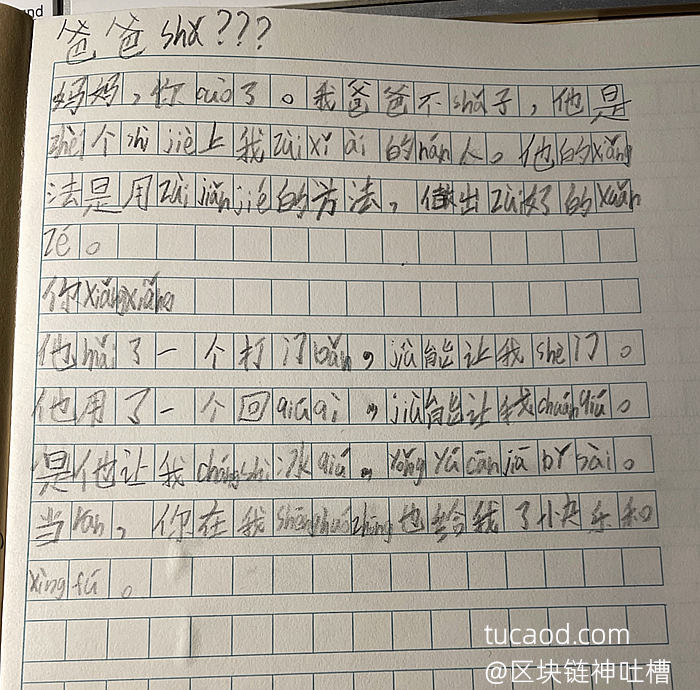 nd
爸爸shǎ???
妈妈,你cuò了。我爸爸不shǎ子,他是
zhè个shì jiè上我zuì xǐ ài的nán人。他的xiǎng
法是用zuì jiǎn jié的方法,做出zuì好的xuǎn
zé。
你xiǎngxiǎng
他mǎi了一个打门bǎn,jiù能让我shè门。
他用了一个回qiú qì,jiù能让我chuán qiú。
是他让我cháng shì冰qiú,yǒng yú cān jiā bǐ sài。
当rán,你在我shēng huó zhōng也给我了快乐和
xìng fú。
tucaod.com
@区块链神吐槽